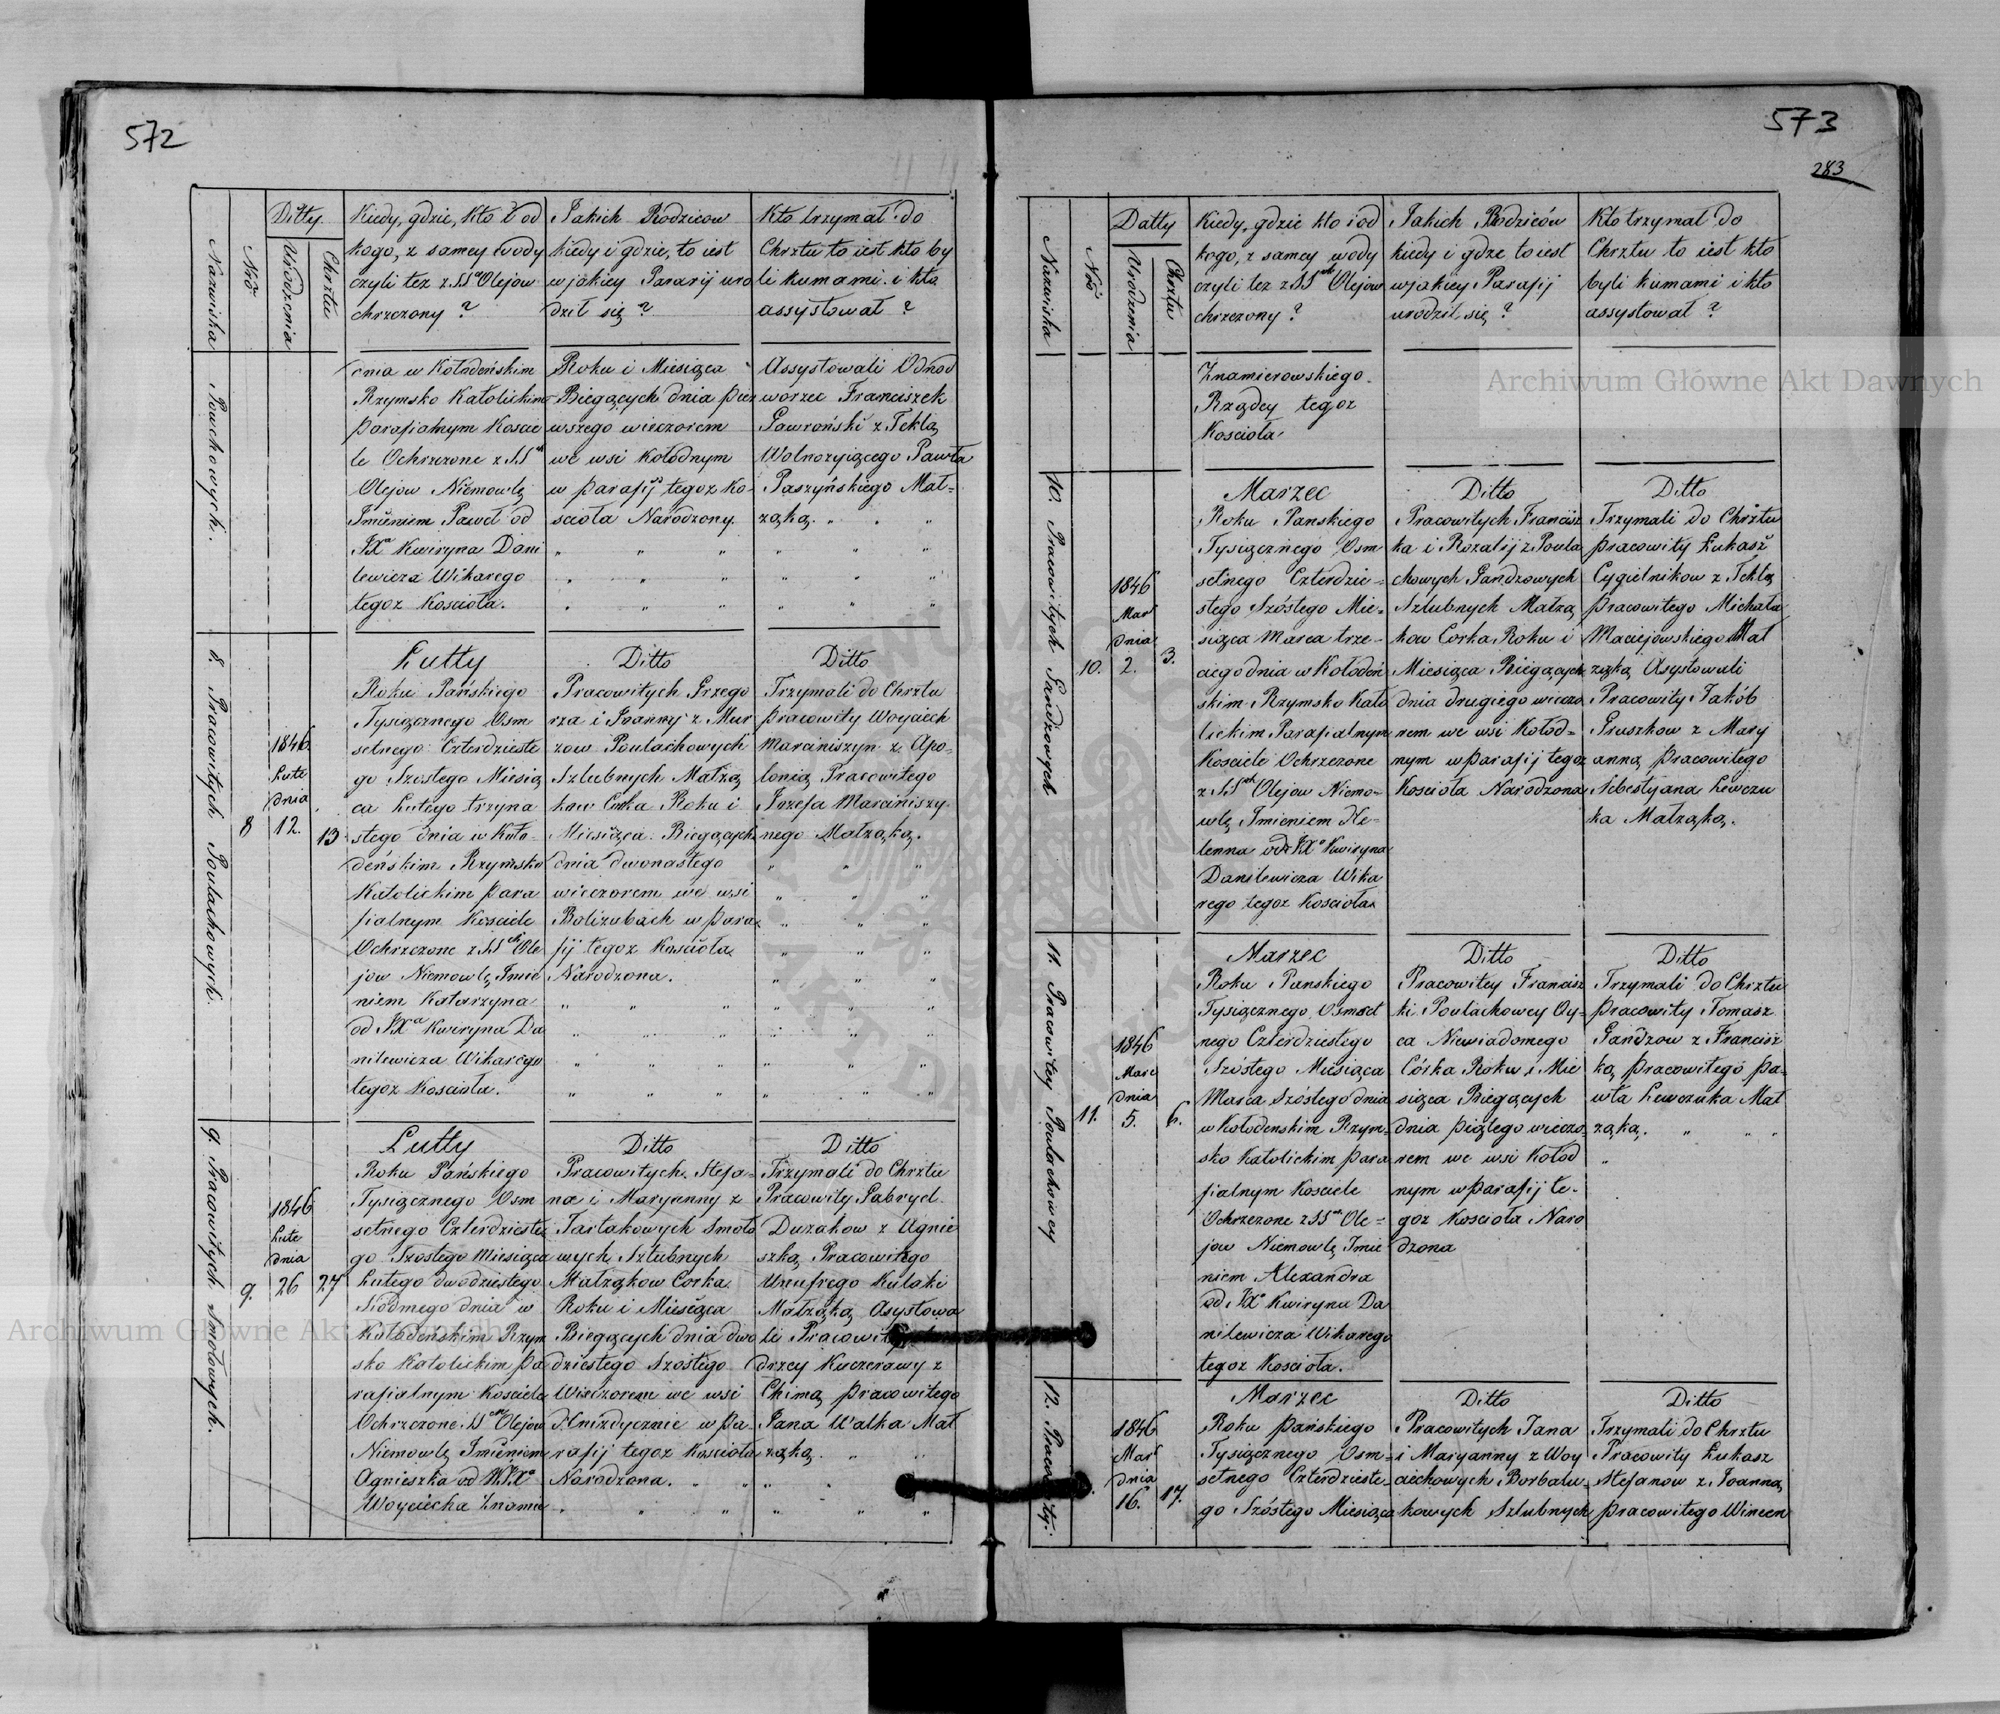 572
Datty.
Nazwiska
Nro
Urodzenia
Chrztu
Kiedy, gdzie, kto i od
kogo, z samey wody
czyli tez z SS Olejow
chrzczony ?
Jakich Rodzicow
kiedy i gdzie, to iest
w jakiey Pararij uro
dził się ?
Kto trzymał do
Chrztu to iest kto by
li kumami i kto
assystował ?
Poulhowych.
dnia w Kołodeńskim
Rzymsko Katolickim
parafialnym Koscie
le Ochrzczone z SS
Olejow Niemowlę
Imieniem Paweł od
JXa Kwiryna Dani
lewicza Wikarego
tegoz Kosciola.
Roku i Miesiąca
Biegących dnia pier
wszego wieczorem
we wsi Kołodnym
w parafij tegoz Ko-
scioła Narodzony.
Assystowali Odnod
worzec Franciszek
Gawroński z Teklą
Wolnozyiącego Pawła
Paszyńskiego Mał-
ząką.
8. Pracowitych Poulachowych.
8
1846.
Lute
dnia
12.
13
Lutty
Roku Pańskiego
Tysiącznego Osm
setnego Czterdzieste
go Szostego Miesią
ca Lutego trzyna
stego dnia w Koło-
deńskim Rzymsko
Katolickim para
fialnym Kosciele
Ochrzczone z SS Ole
jow Niemowlę Imie
niem Katarzyna
od JXa Kwiryna Da
nilewicza Wikarego
tegoz Kosciola.
Ditto
Pracowitych Grzego
rza i Joanny z Mur
zow Poulachowych
Szlubnych Małzą
kow Corka Roku i
Miesiąca Biegących
dnia dwonastego
wieczorem we wsi
Bolizubach w para
fij tegoz Kosciola
Narodzona.
Ditto
Trzymali do Chrztu
pracowity Woyciech
Marciniszyn z Apo-
lonią Pracowitego
Jozefa Marciniszy
nego Małząką.
9. Pracowitych Smołowych.
9.
1846
Lute
dnia
26
27
Lutty
Roku Pańskiego
Tysiącznego Osm
setnego Czterdzieste
go Szostego Miesiąca
Lutego dwodziestego
Siodmego dnia w
Kołodeńskim Rzym
sko Katolickim pa
rafialnym Kosciele
Ochrzczone SS Olejow
Niemowlę Imieniem
Agnieszka od WJXa
Woyciecha Znamie
Ditto
Pracowitych Stefa-
na i Maryanny z
Tartakowych Smoło
wych Szlubnych
Małząkow Corka
Roku i Miesiąca
Biegących dnia dwo
dziestego Szostego
Wieczorem we wsi
Hnizdycznie w Pa-
rafij tegoz Kosciola
Narodzona.
Ditto
Trzymali do Chrztu
Pracowity Gabryel
Duzakow z Agnie
szką Pracowitego
Unufrego Kulaki
Małząką Asystowa
li Pracowity
drzey Kuczerawy z
Chimą pracowitego
Jana Walka Mał
ząką.
573
283
Datty
Nazwiska
Nro
Urodzenia
Chrztu
Kiedy, gdzie kto i od
kogo, z samey wody
czyli tez z SS Olejow
chrzczony ?
Jakich Rodziców
kiedy i gdze to iest
w jakiey Parafij
urodził się ?
Kto trzymał do
Chrztu to iest kto
byli kumami i kto
assystował ?
Znamierowskiego
Rządcy tegoz
Kosciola.
10. Pracowitych Gandzowych
10.
1846
Mar
dnia
2.
3.
Marzec
Roku Panskiego
Tysiącznego Osm
setnego Czterdzie-
stego Szóstego Mie-
siąca Marca trze-
ciego dnia w Kołodeń
skim Rzymsko Kato
lickim Parafialnym
Kosciele Ochrzczone
z SS Olejow Niemo-
wlę Imieniem He-
lenna od JXa Kwiryna
Danilewicza Wika
rego tegoz Kosciola
Ditto
Pracowitych Francisz
ka i Rozalij z Poula
chowych Gandzowych
Szlubnych Małzą
kow Corka Roku i
Miesiąca Biegących
dnia drugiego wieczo
rem we wsi Kołod-
nym w parafij tegoz
Kosciola Narodzona
Ditto
Trzymali do Chrztu
pracowity Łukasz
Cygielnikow z Teklą
pracowitego Michała
Maciejowskiego Mał
ząką Asystowali
Pracowity Jakób
Gruszkow z Mary
anną pracowitego
Sebestyana Lewczu
ka Małząką.
11. Pracowitey Poulachowey
11.
1846
Marc
dnia
5.
6.
Marzec
Roku Panskiego
Tysiącznego Osmset
nego Czterdziestego
Szóstego Miesiąca
Marca Szóstego dnia
w Kołodenskim Rzym-
sko Katolickim para
fialnym Kosciele
Ochrzczone z SS Ole-
jow Niemowlę Imie
niem Alexandra
od JXa Kwiryna Da
nilewicza Wikarego
tegoz Kosciola.
Ditto
Pracowitey Francisz
ki Poulachowey Oy-
ca Niewiadomego
Córka Roku i Mie
siąca Biegących
dnia piątego wieczo-
rem we wsi Kołod
nym w parafij te-
goz Kosciola Naro
dzona
Ditto
Trzymali do Chrztu
pracowity Tomasz
Gandzow z Francisz
ką pracowitego Pa-
wła Lewczuka Mał
ząką.
12. Pracowity.
1846
Mar
dnia
16.
17.
Marzec
Roku pańskiego
Tysiącznego Osm-
setnego Czterdzieste
go Szóstego Miesiąca
Ditto
Pracowitych Jana
i Maryanny z Woy
ciechowych Borbalu-
kowych Szlubnych
Ditto
Trzymali do Chrztu
Pracowity Łukasz
Stefanow z Joanną
pracowitego Wincen
Archiwum Główne Akt Dawnych
Archiwum Główne Akt Dawnych